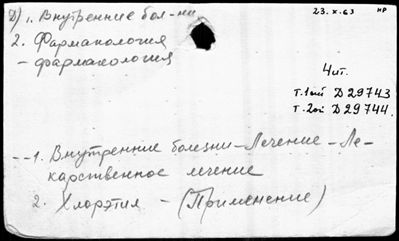 Д) 1. Внутренние бол-ни
23.X.63 НР
2. Фармакология
- фармакология
Чит.
Т.1ый D 29743
Т.2ой D 29744.
--1. Внутренние болезни-Лечение-Ле-
карственное лечение
2. Хлорэтил - (Применение)